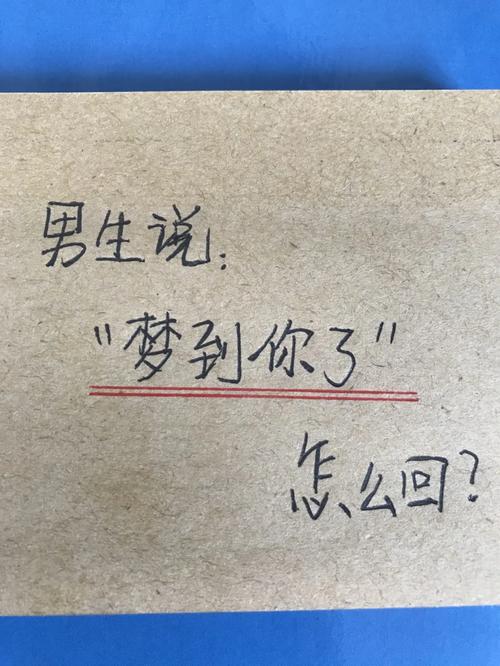 男生说:
"梦到你了"
怎么回?